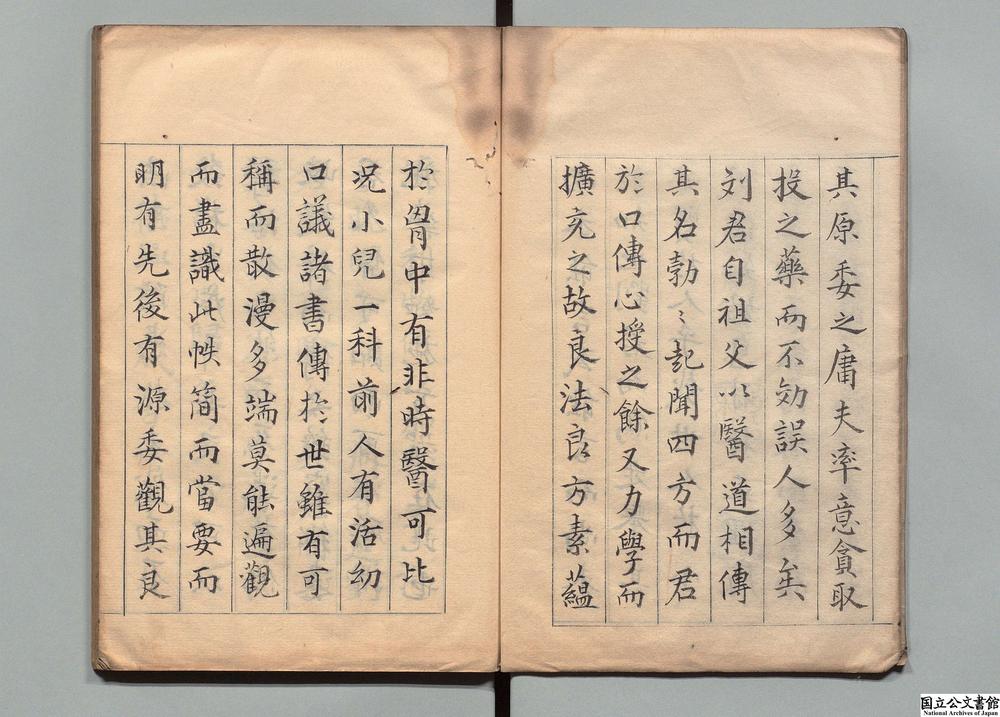 其原委之庸夫率意貪取
投之藥而不効誤人多矣
刘君自祖父以醫道相傳
其名勃〻起聞四方而君
於口傳心授之餘又力學而
擴充之故良法良方素蘊
於胷中有非時醫可比
况小兒一科前人有活幼
口議諸書傳於世雖有可
稱而散漫多端莫能遍觀
而盡識此帙簡而當要而
明有先後有源委觀其良
国立公文書館
National Archives of Japan